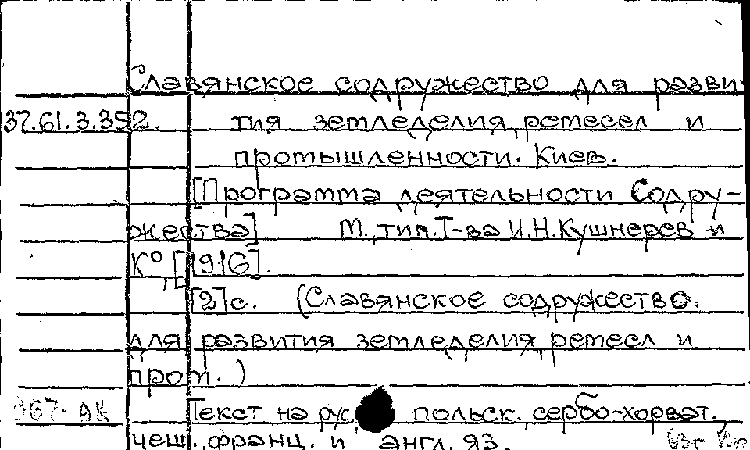 Славянское содружество для разви-
37.61.3.352. тия земледелия, ремесел и
промышленности. Киев.
[Программа деятельности Содру-
жества] М., тип. Т-ва И.Н.Кушнерев и
К°, [1916].
[2]с. (Славянское содружество.
для развития земледелия, ремесл и
пром.)
Текст на рус. польск., сербо-хорват.,
чеш., франц. и англ. яз.